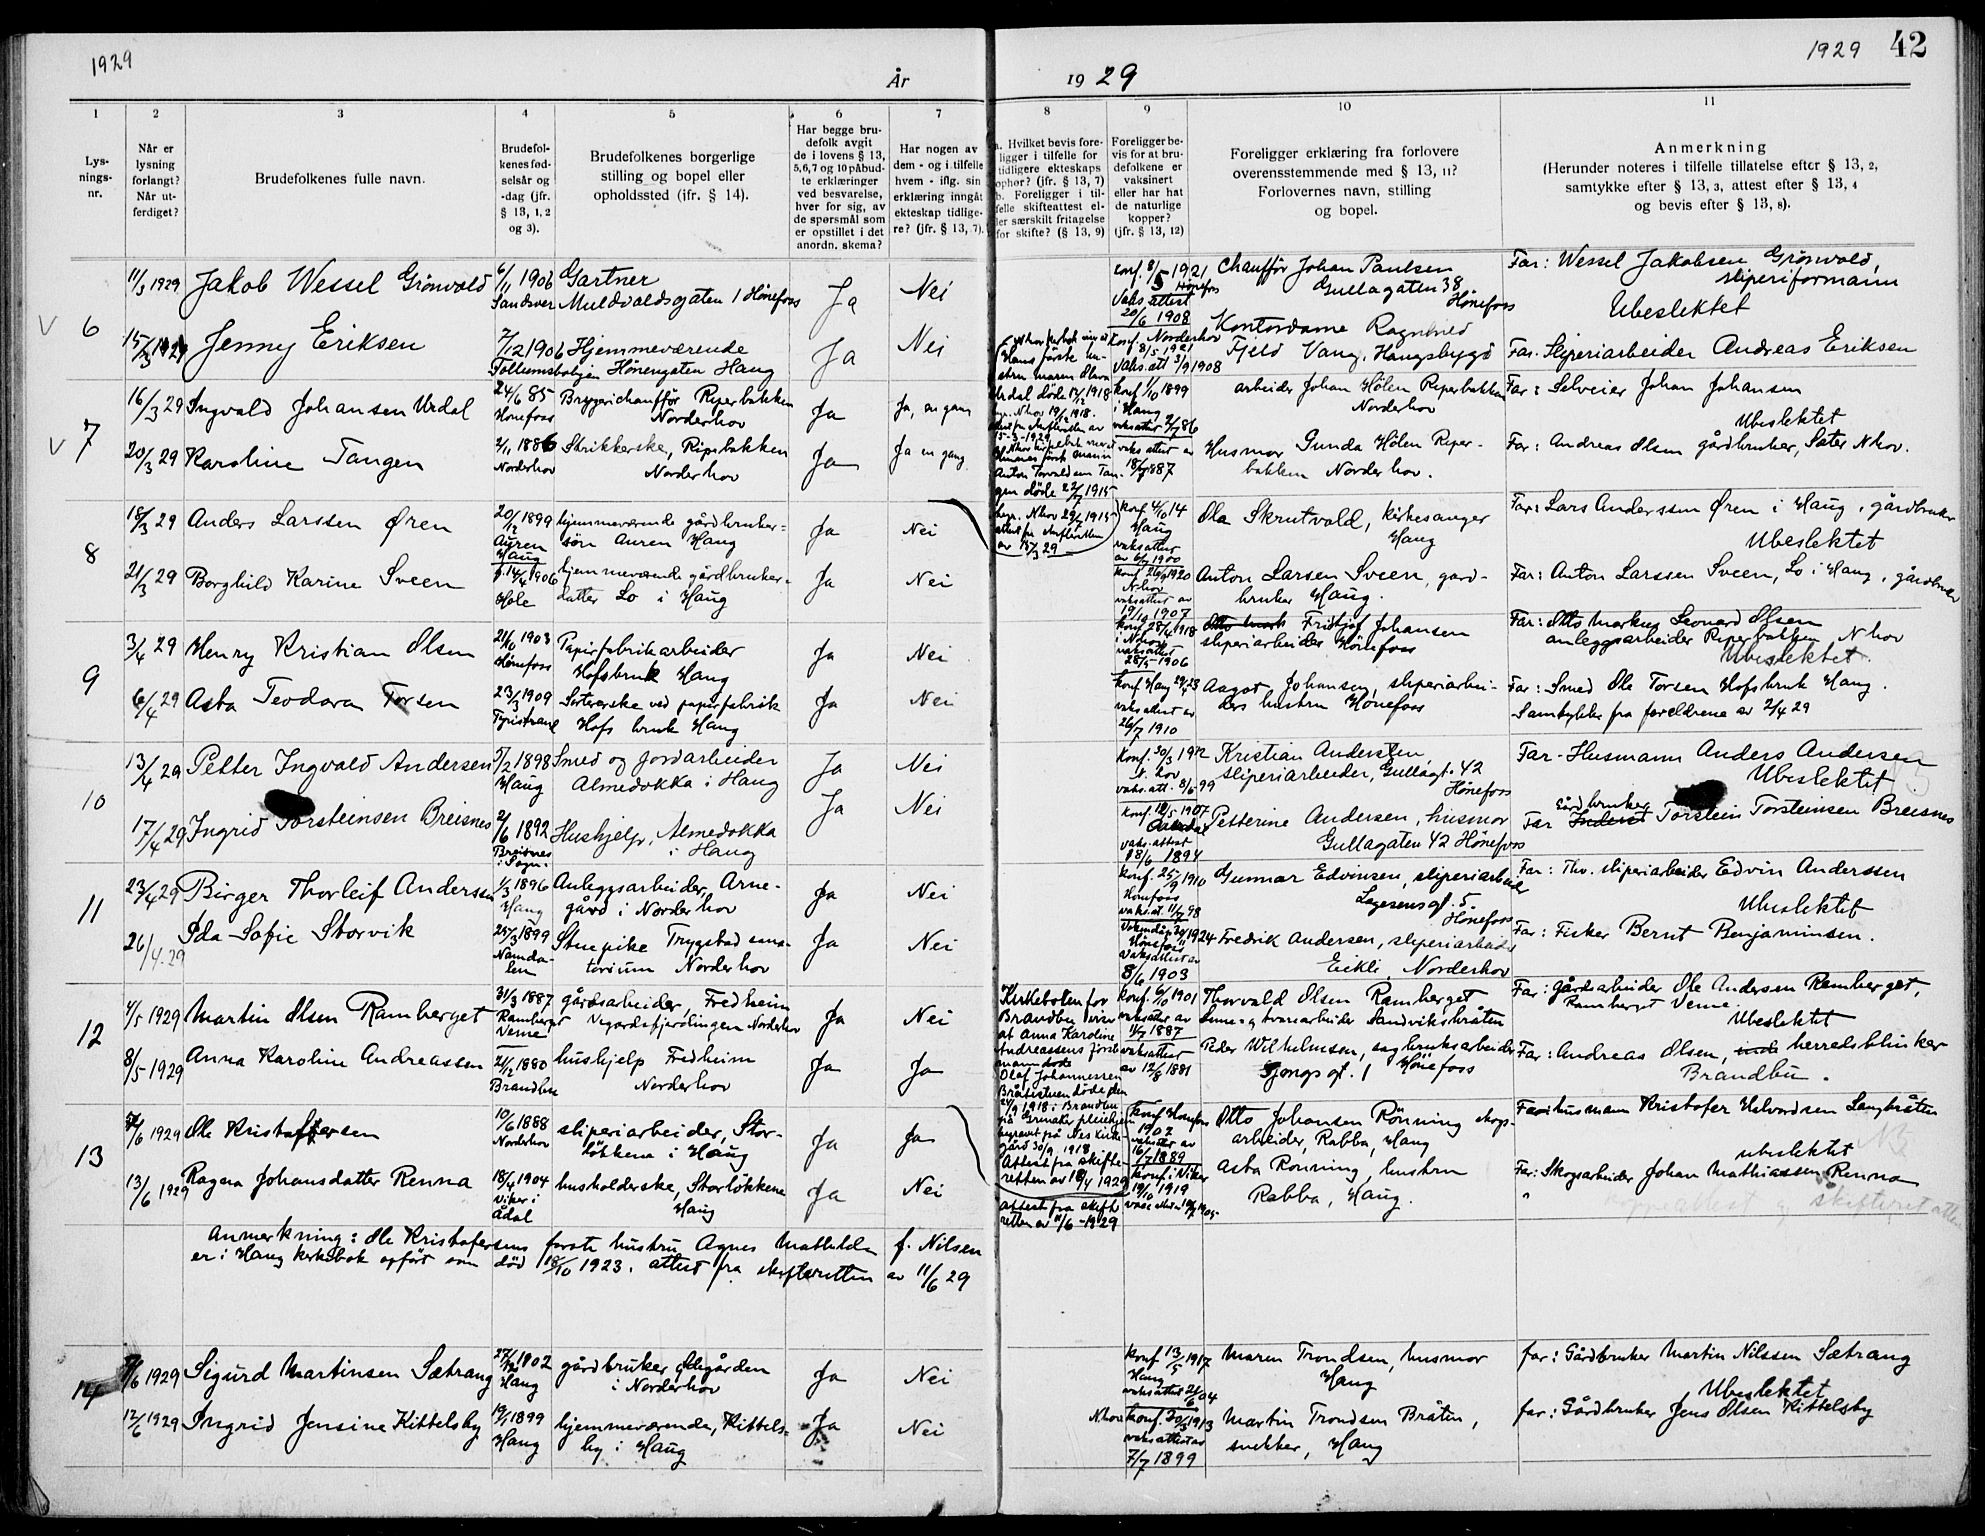 1929
År
19 29
1929 42
1
2
3
4
5
6
7
8
9
10
11
Lys-
nings-
nr.
Når er
lysning
forlangt?
Når ut-
ferdiget?
Brudefolkenes fulle navn.
Brudefol-
kenes fød-
selsår og
-dag (jfr.
§ 13, 1, 2
og 3).
Brudefolkenes borgerlige
stilling og bopel eller
opholdssted (ifr. § 14).
Har begge bru-
defolk avgit
de i lovens § 13,
5,6,7 og 10 påbud-
te erklæringer
ved besvarelse,
hver for sig, av
de spørsmål som
er opstillet i det
anordn. skema?
Har nogen av
dem - og i tilfelle
hvem - iflg. sin
erklæring inngåt
ekteskap tidlige-
re? (jfr. § 13, 7).
a. Hvilket bevis fore-
ligger i tilfelle for
tidligere ekteskaps
ophør? (jfr. § 13, 7)
b. Foreligger i til-
felle skifteattest el-
ler særskilt fritagelse
for skifte? (§ 13, 9)
Foreligger be-
vis for at bru-
defolkene er
vaksinert
eller har hat
de naturlige
kopper?
(jfr. § 13, 12)
Foreligger erklæring fra forlovere
overensstemmende med § 13, 11?
Forlovernes navn, stilling
og bopel.
Anmerkning
(Herunder noteres i tilfelle tillatelse efter § 13, 2,
samtykke efter § 13, 3, attest efter § 13, 4
og bevis efter § 13, 8).
6
11/3 1929 Jakob Wessel Grönvold
6/11 1906
Sandsvær
Gartner
Muldvaldsgaten 1 Hönefoss
Ja
Nei
Konf. 8/5 1921
Hönefoss
Vaks. attest
20/6 1908
Chaufför Johan Paulsen
Gullagaten 38
Hönefoss
Far: Wessel Jakobsen Grönvold,
sliperiformann
Ubeslektet
15/3 1929 Jenny Eriksen
7/12 1906
Hjemmeværende
Follumsboligen Hönengaten Haug
Ja
Nei
Konf. Norderhov
8/5 1921
Vaks. att. 3/9 1908
Kontordame Ragnhild
Fjeld Vang, Haugsbygd
Far. Sliperiarbeider Andreas Eriksen
7
16/3 29 Ingvald Johansen Urdal
24/6 85
Hönefoss
Bryggerichauffør Riperbakken
Norderhov
Ja
Ja, en gang
Hans förste hu-
stru Maren Olava
Urdal döde 12/12 1918
konf 1/10 1899
i Haug
arbeider Johan Hölen Riperbakken
Norderhov
Far: Selveier Johan Johansen
Ubeslektet
20/3 29 Karoline Tangen
2/11 1886
Norderhov
Strikkerske, Ripsbakken
Norderhov
Ja
Ja en gang
Hennes först mann
Anton Torvaldsen Tan-
gen döde 22/7 1915
vaks attest av
18/7 87
Husmor Gunda Hölen Riper-
bakken Norderhov.
Far: Andreas Olsen gårdbruker, Sater Nhov.
8
18/3 29 Anders Larssen Øren
20/12 1899
Auren
Haug
hjemmeværende gårdbruker-
sön Auren Haug
Ja
Nei
konf 4/10 14
Haug
vaksattest
av 6/7 1900
Ola Skrutvold, kirkesanger
Haug
Far: Lars Anderssen Øren i Haug, gårdbruker
Ubeslektet
21/3 29 Borghild Karine Sveen
f. 14/4 1906
Hole
hjemmeværende gårdbruker-
datter Lo i Haug
Ja
Nei
konf 26/9 1920
N.hov
vaksattest av
19/10 1907
Anton Larsen Sveen, gard-
bruker Haug.
Far: Anton Larssen Sveen, Lo i Haug, gårdbruker
9
3/4 29 Henry Kristian Olsen
21/10 1903
Hönefoss
Papirfabrikarbeider
Hofsbruk Haug
Ja
Nei
konf 28/4 1918
i Nhov
vaksattest
28/5 1906
Fridtjof Johansen
sliperiarbeider Hönefoss
Far: Otto Markus Leonard Olsen
anleggsarbeider Riperbakken Nhov
Ubeslektet.
6/4 29 Asta Teodora Torsen
23/3 1909
Tyristrand
Sortererske ved papirfabrik
Hofs bruk Haug
Ja
Nei
konf Haug 29/4 23
vaksattest av
26/7 1910
Aagot Johansen, sliperiarbei-
ders hustru Hönefoss
Far: Smed Ole Torsen Hofsbruk Haug.
Samtykke fra foreldrene av 2/4 29
10
13/4 29 Petter Ingvald Andersen
5/2 1898
Haug
Smed og jordarbeider
Almedokka i Haug
Ja
Nei
Konf. 30/3 1912
N. hov
vaks. att. 8/6 99
Kristian Andersen,
sliperiarbeider, Gullagt. 42
Hönefoss
Far - Husmann Anders Andersen
Ubeslektet
17/4 29 Ingrid Torsteinsen Breisnes
2/6 1892
Breisnes
i Sogn.
Hushjelp, Almedokka
i Haug
Ja
Nei
Konf. 12/5 1907
Aardal
vaks. attest
18/6 1894
Petterine Andersen, husmor
Gullagaten 42 Hönefoss
Gårdbruker
Far Torstein Torsteinsen Breisnes
11
23/4 29 Birger Thorleif Andersen
1/3 1896
Haug
Anleggsarbeider, Arne-
gård i Norderhov
Ja
Nei
konf. 25/9 1910
Hönefoss
vaks. at. 11/7 98
Gunnar Edvinsen, sliperiarbeider
Lagesensgt. 5.
Hönefoss
Far: Thv. sliperiarbeider Edvin Anderssen
Ubeslektet
26/4. 29 Ida Sofie Storvik
25/3 1899
Namda-
len
Stuepike Trygstad sana-
torium Norderhov
Ja
Nei
1924
Hönefoss
vaksattest av
8/6 1903
Fredrik Andersen, sliperiarbeider
Eikli, Norderhov
Far: Fisker Bernt Benjaminsen.
12
4/5 1929 Martin Olsen Ramberget
31/3 1887
Ramberget
Veme
gårdsarbeider, Fredheim
Vegardsfjerdingen Norderhov
Ja
Nei
Kirkeboken for
Brandbu viser
at Anna Karoline
Andreassens förste
mann
Olaf Johannessen
Bråtestuen döde den
24/9 1918 i Brandbu
på Granaker pleiehjem
begravet på Nes kirke-
gård 30/9 1918
Attest fra skifte-
retten av 18/4 1929
konf. 6/10 1901
vaksatter av
1/7 1887
Thorvald Olsen Ramberget
Sandviksbråten
Far: gårdsarbeider Ole Andersen Ramberget,
Ramberget Veme.
Ubeslektet
8/5 1929 Anna Karoline Andreassen
21/12 1880
Brandbu
hushjelp Fredheim
Norderhov
Ja
Ja
vaksattest
av 12/8 1881
Peder Wilhelmsen, sagbruksarbeider
Tjongs gt. 1 Hönefoss
Far: Andreas Olsen, herredsblinker
Brandbu.
13
7/6 1929 Ole Kristoffersen
10/6 1888
Norderhov
sliperiarbeider, Stor-
lökkena i Haug
Ja
Ja
Konf Hönefoss
1902
vaksatter av
16/7 1889
Otto Johansen Rönning skogs-
arbeider, Rabba, Haug
Far: husmann Kristofer Halvordsen Langbråten
ubeslektet
13/6 1929 Ragna Johansdatter Renna
18/4 1904
Viker i
Ådal
husholderske, Storlökkene
Haug
Ja
Nei
attest fra skifte
retten av 11/6 - 1929
konf. i Viker
19/10 1919
Asta Rönning, hustru
Rabba, Haug.
Far: Skogsarbeider Johan Mathiassen Renna
skifteret attest
Anmerkning: Ole Kristofersens förste hustru Agnes Mathilde f. Nilsen
er i Haug kirkebok opfört som död 18/10 1923. attest fra skifteretten av 11/6 29
14
/6 1929 Sigurd Martinsen Sætrang
27/12 1902
Haug
gårdbruker, Olegården
i Norderhov
Ja
Nei
konf 13/5 1917
Haug
vaksattest 21/6 04
Maren Trondsen, husmor
Haug
far: Gårdbruker Martin Nilssen Sætrang
Ubeslektet
12/6 1929 Ingrid Jensine Kittelsby
19/1 1899
Haug
hjemmeværende, Kittels-
by i Haug
Ja
Nei
Nhov konf. 30/3 1913
vaksattest av
7/7 1899
Martin Trondsen Bråten,
snekker, Haug
far: Gårdbruker Jens Olsen Kittelsby